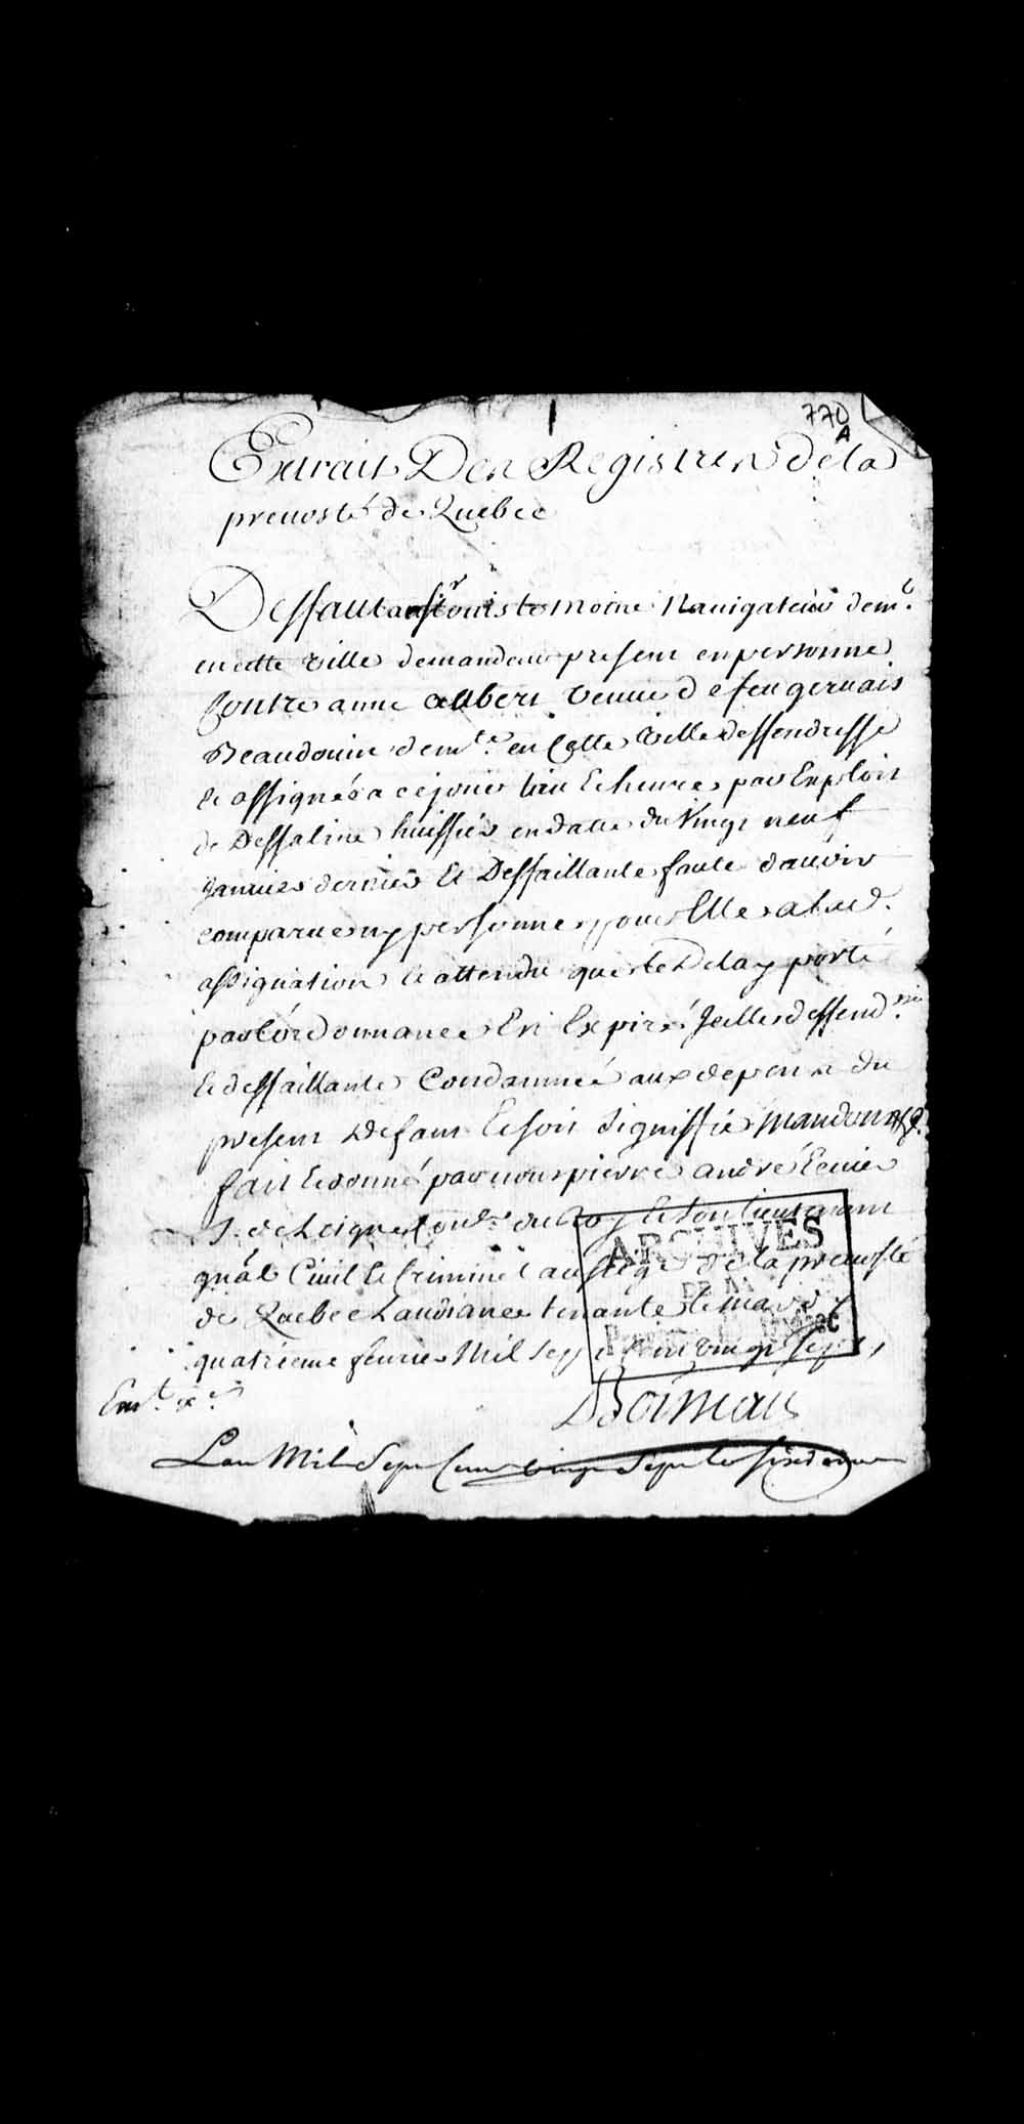 770
A
Extrait Des Registres de la
preuosté de Quebec
Deffaut au Sr Louis Lemoine Nauigateur demt.
en cette Ville demandeur present en personne
Contre anne aubert Veuue de feu geruais
Beaudouin demte. en Cette Ville deffendresse
et assignée a ce jour lieu et heure par Exploit
de Dessaline huissier en datte du Vingt neuf
Januier dernier Et Deffaillante faute dauoir
comparue ny personne pour Elle a lad.
assignation et attendu que le Delay porté
par lordonnance Est Expiré Icelle deffend.
et deffaillante Condamnée aux depens du
present Defaut et soit signiffié Mandons &
fait et donné par nous pierre andré Ecuier
S. de Leigne Conser. du Roy et son Lieutenant
gnâl Ciuil et Criminel au siege de la preuosté
de Quebec Laudiance tenante le mardy
quatrieme feurier Mil Sept Cent vingt sept
ARCHIVES
DE LA
Québec
Boisseau
Lan Mil Sept Cent vingt Sept le